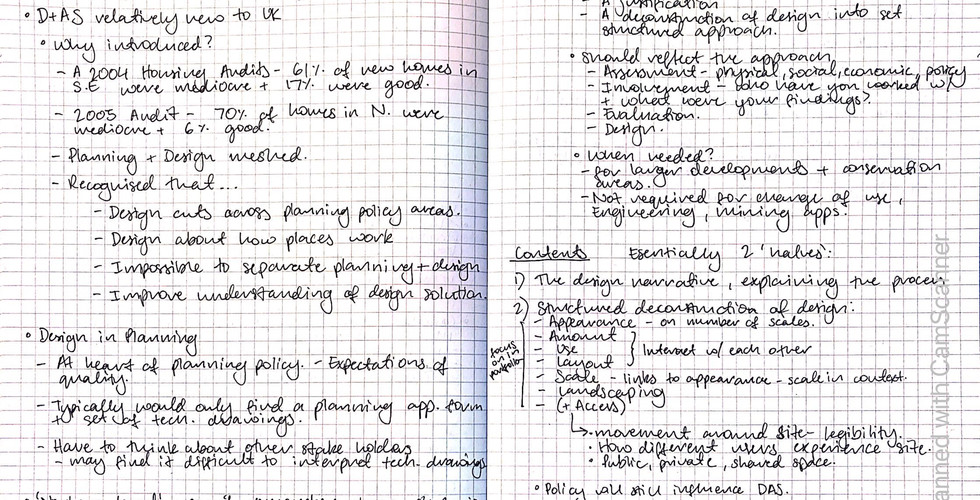 • D+AS relatively new to UK
• Why introduced?
- A 2004 Housing Audit - 61% of new homes in
S.E were mediocre + 17% were good.
- 2005 Audit - 70% of homes in N. were
mediocre + 6% good.
- Planning + Design meshed.
- Recognised that...
- Design cuts across planning policy areas.
- Design about how places work
- Impossible to separate planning + design
- Improve understanding of design solution.
• Design in Planning
- At heart of planning policy. - Expectations of
quality.
- Typically would only find a planning app. form
+ set of tech. drawings.
- Have to think about other stake holders
- may find it difficult to interpret tech. drawings
- A justification
- A deconstruction of design into set
structured approach.
• Should reflect the approach
- Assessment - physical, social, economic, policy
- Involvement - who have you worked w/
+ what were your findings?
- Evaluation.
- Design.
• When needed?
- for larger developments + conservation
areas.
- Not required for change of use,
Engineering, mining apps.
Contents Esentially 2 'halves':
1) The design narrative, explaining the process
2) Structured deconstruction of design:
- Appearance - on number of scales.
- Amount
- Use
- Layout
Interact w/ each other
focus
on in
portfolio
- Scale - links to appearance - scale in context.
- Landscaping
- (+ Access)
↳ • movement around site - legibility.
• How different users experience site.
• Public, private, shared space.
• Policy will still influence DAS.
anned with CamScanner